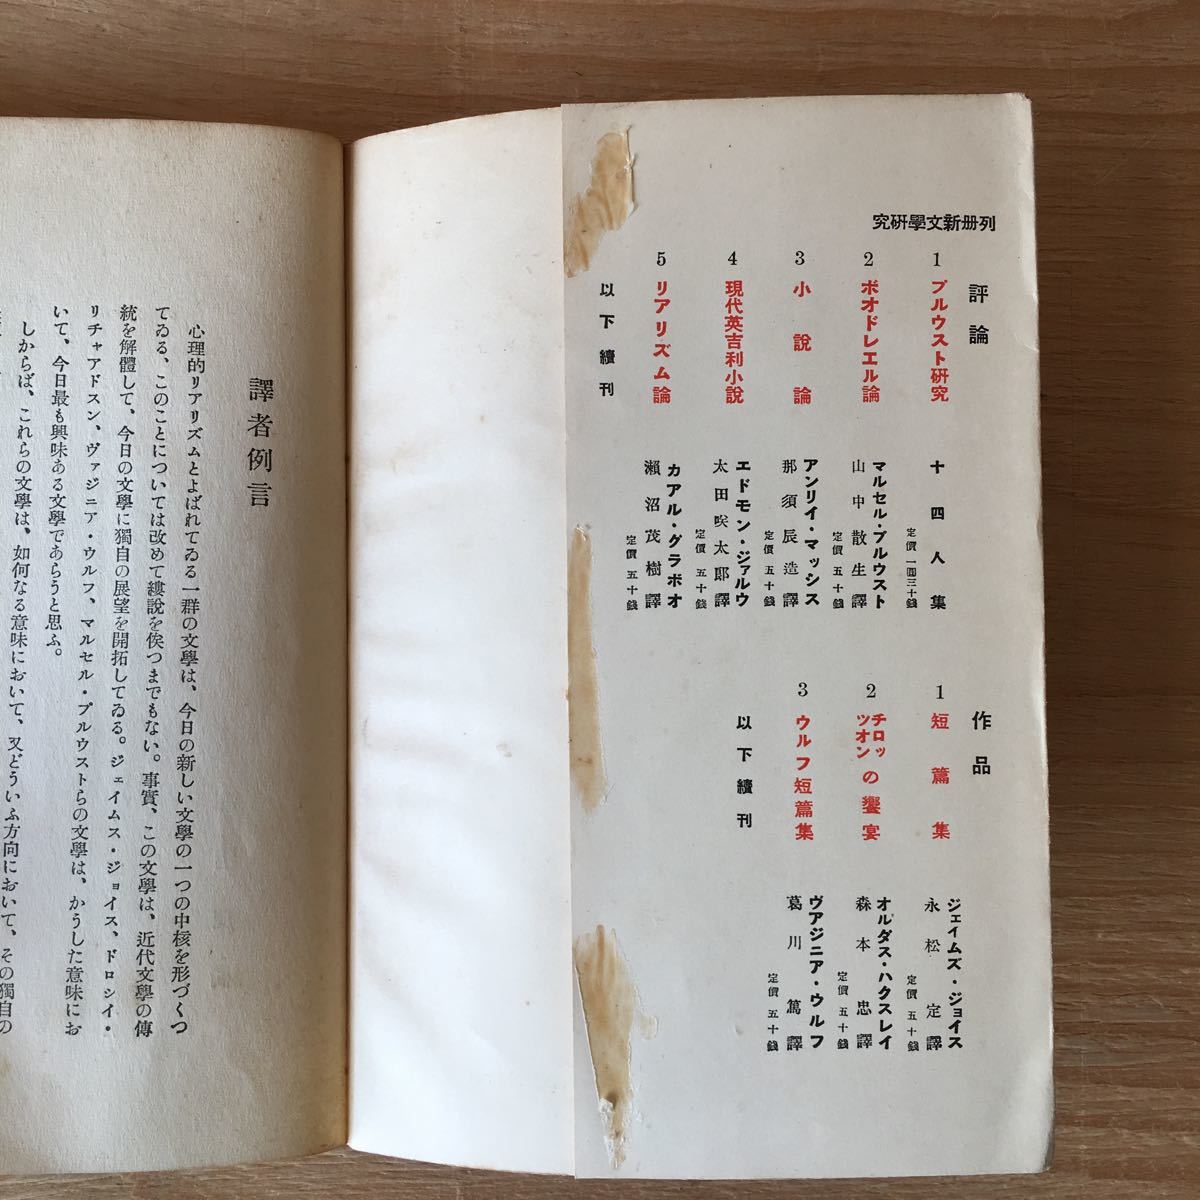 列册新文學硏究
評論
1 プルウスト硏究 十四人集
定價 一圓三十錢
2 ボオドレエル論 マルセル・プルウスト
山中散生譯
定價 五十錢
3 小說論 アンリイ・マッシス
那須辰造譯
定價 五十錢
4 現代英吉利小說 エドモン・ジァルウ
太田咲太郎譯
定價 五十錢
5 リアリズム論 カアル・グラボオ
瀨沼茂樹譯
定價 五十錢
以下續刊
作品
1 短篇集 ジェイムズ・ジョイス
永松定譯
定價 五十錢
2 チロッツオンの饗宴 オルダス・ハクスレイ
森本忠譯
定價 五十錢
3 ウルフ短篇集 ヴアジニア・ウルフ
葛川篤譯
定價 五十錢
以下續刊
譯者例言
心理的リアリズムとよばれてゐる一群の文學は、今日の新しい文學の一つの中核を形づくつ
てゐる、このことについては改めて縷說を俟つまでもない。事實、この文學は、近代文學の傳
統を解體して、今日の文學に獨自の展望を開拓してゐる。ジェイムス・ジョイス、ドロシイ・
リチャアドスン、ヴァジニア・ウルフ、マルセル・プルウストらの文學は、かうした意味にお
いて、今日最も興味ある文學であらうと思ふ。
しからば、これらの文學は、如何なる意味において、又どういふ方向において、その獨自の